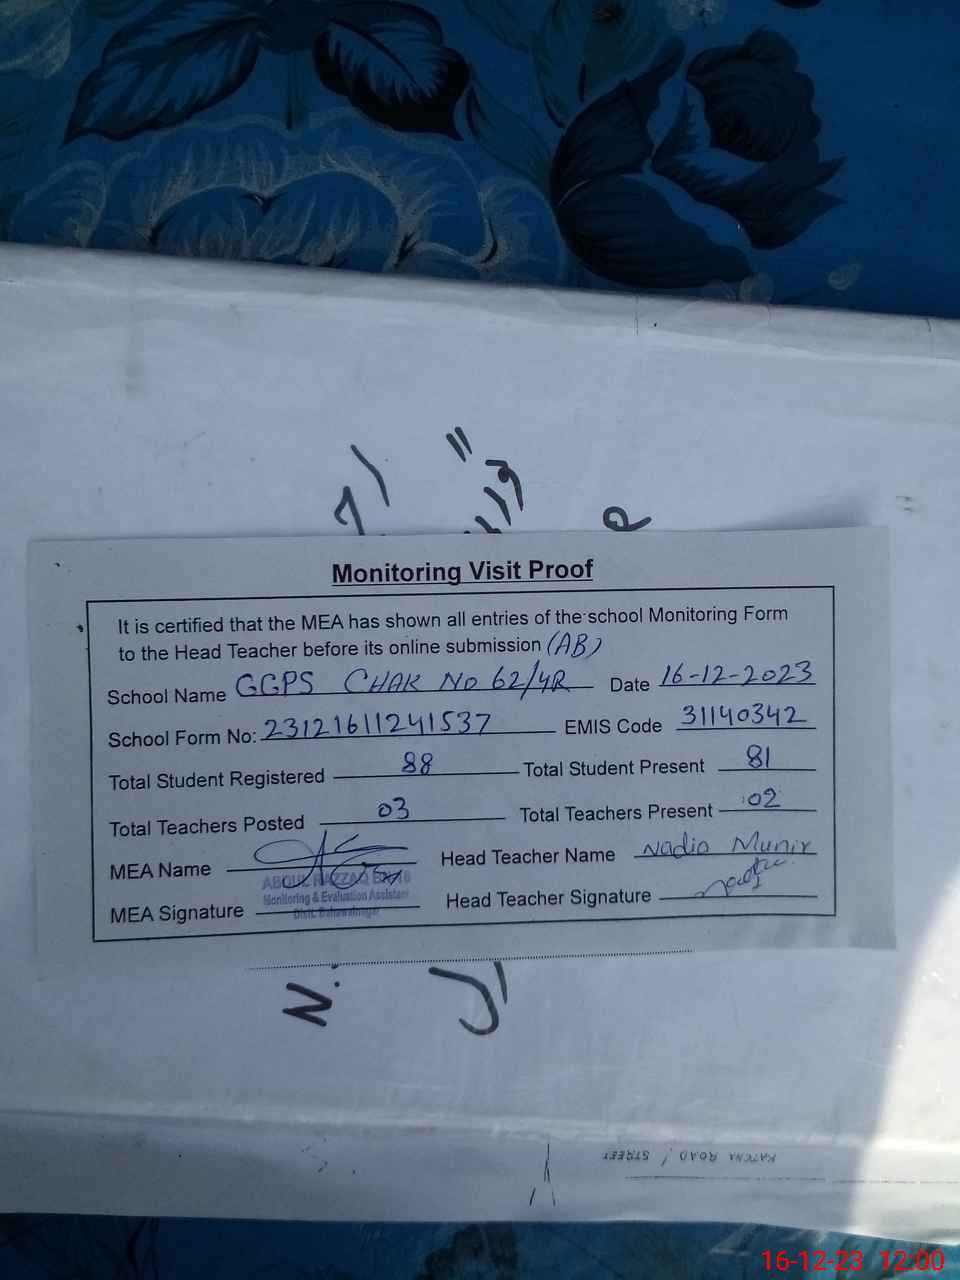 Monitoring Visit Proof
It is certified that the MEA has shown all entries of the school Monitoring Form
to the Head Teacher before its online submission (AB)
School Name GGPS CHAK No 62/4R Date 16-12-2023
School Form No: 23121611241537 EMIS Code 31140342
Total Student Registered 88 Total Student Present 81
Total Teachers Posted 03 Total Teachers Present 02
MEA Name Head Teacher Name Nadia Munir
ABDUL RAZZAQ
Monitoring & Evaluation Assistant
Distt. Bahawalnagar
MEA Signature Head Teacher Signature
KATCHA ROAD / STREET
16-12-23 12:00